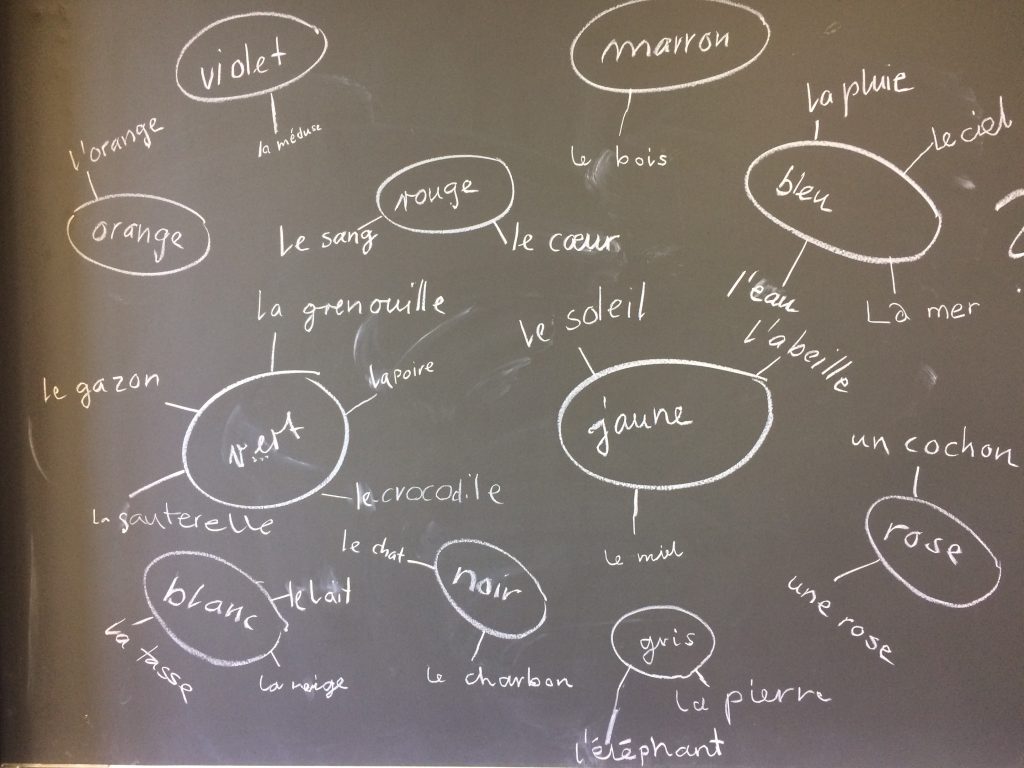 violet
la méduse
marron
le bois
la pluie
le ciel
bleu
l'eau
La mer
l'orange
orange
rouge
le sang
le cœur
la grenouille
le gazon
la poire
vert
la sauterelle
le crocodile
le soleil
l'abeille
jaune
le miel
un cochon
rose
une rose
blanc
le lait
la tasse
la neige
le chat
noir
le charbon
gris
la pierre
l'éléphant